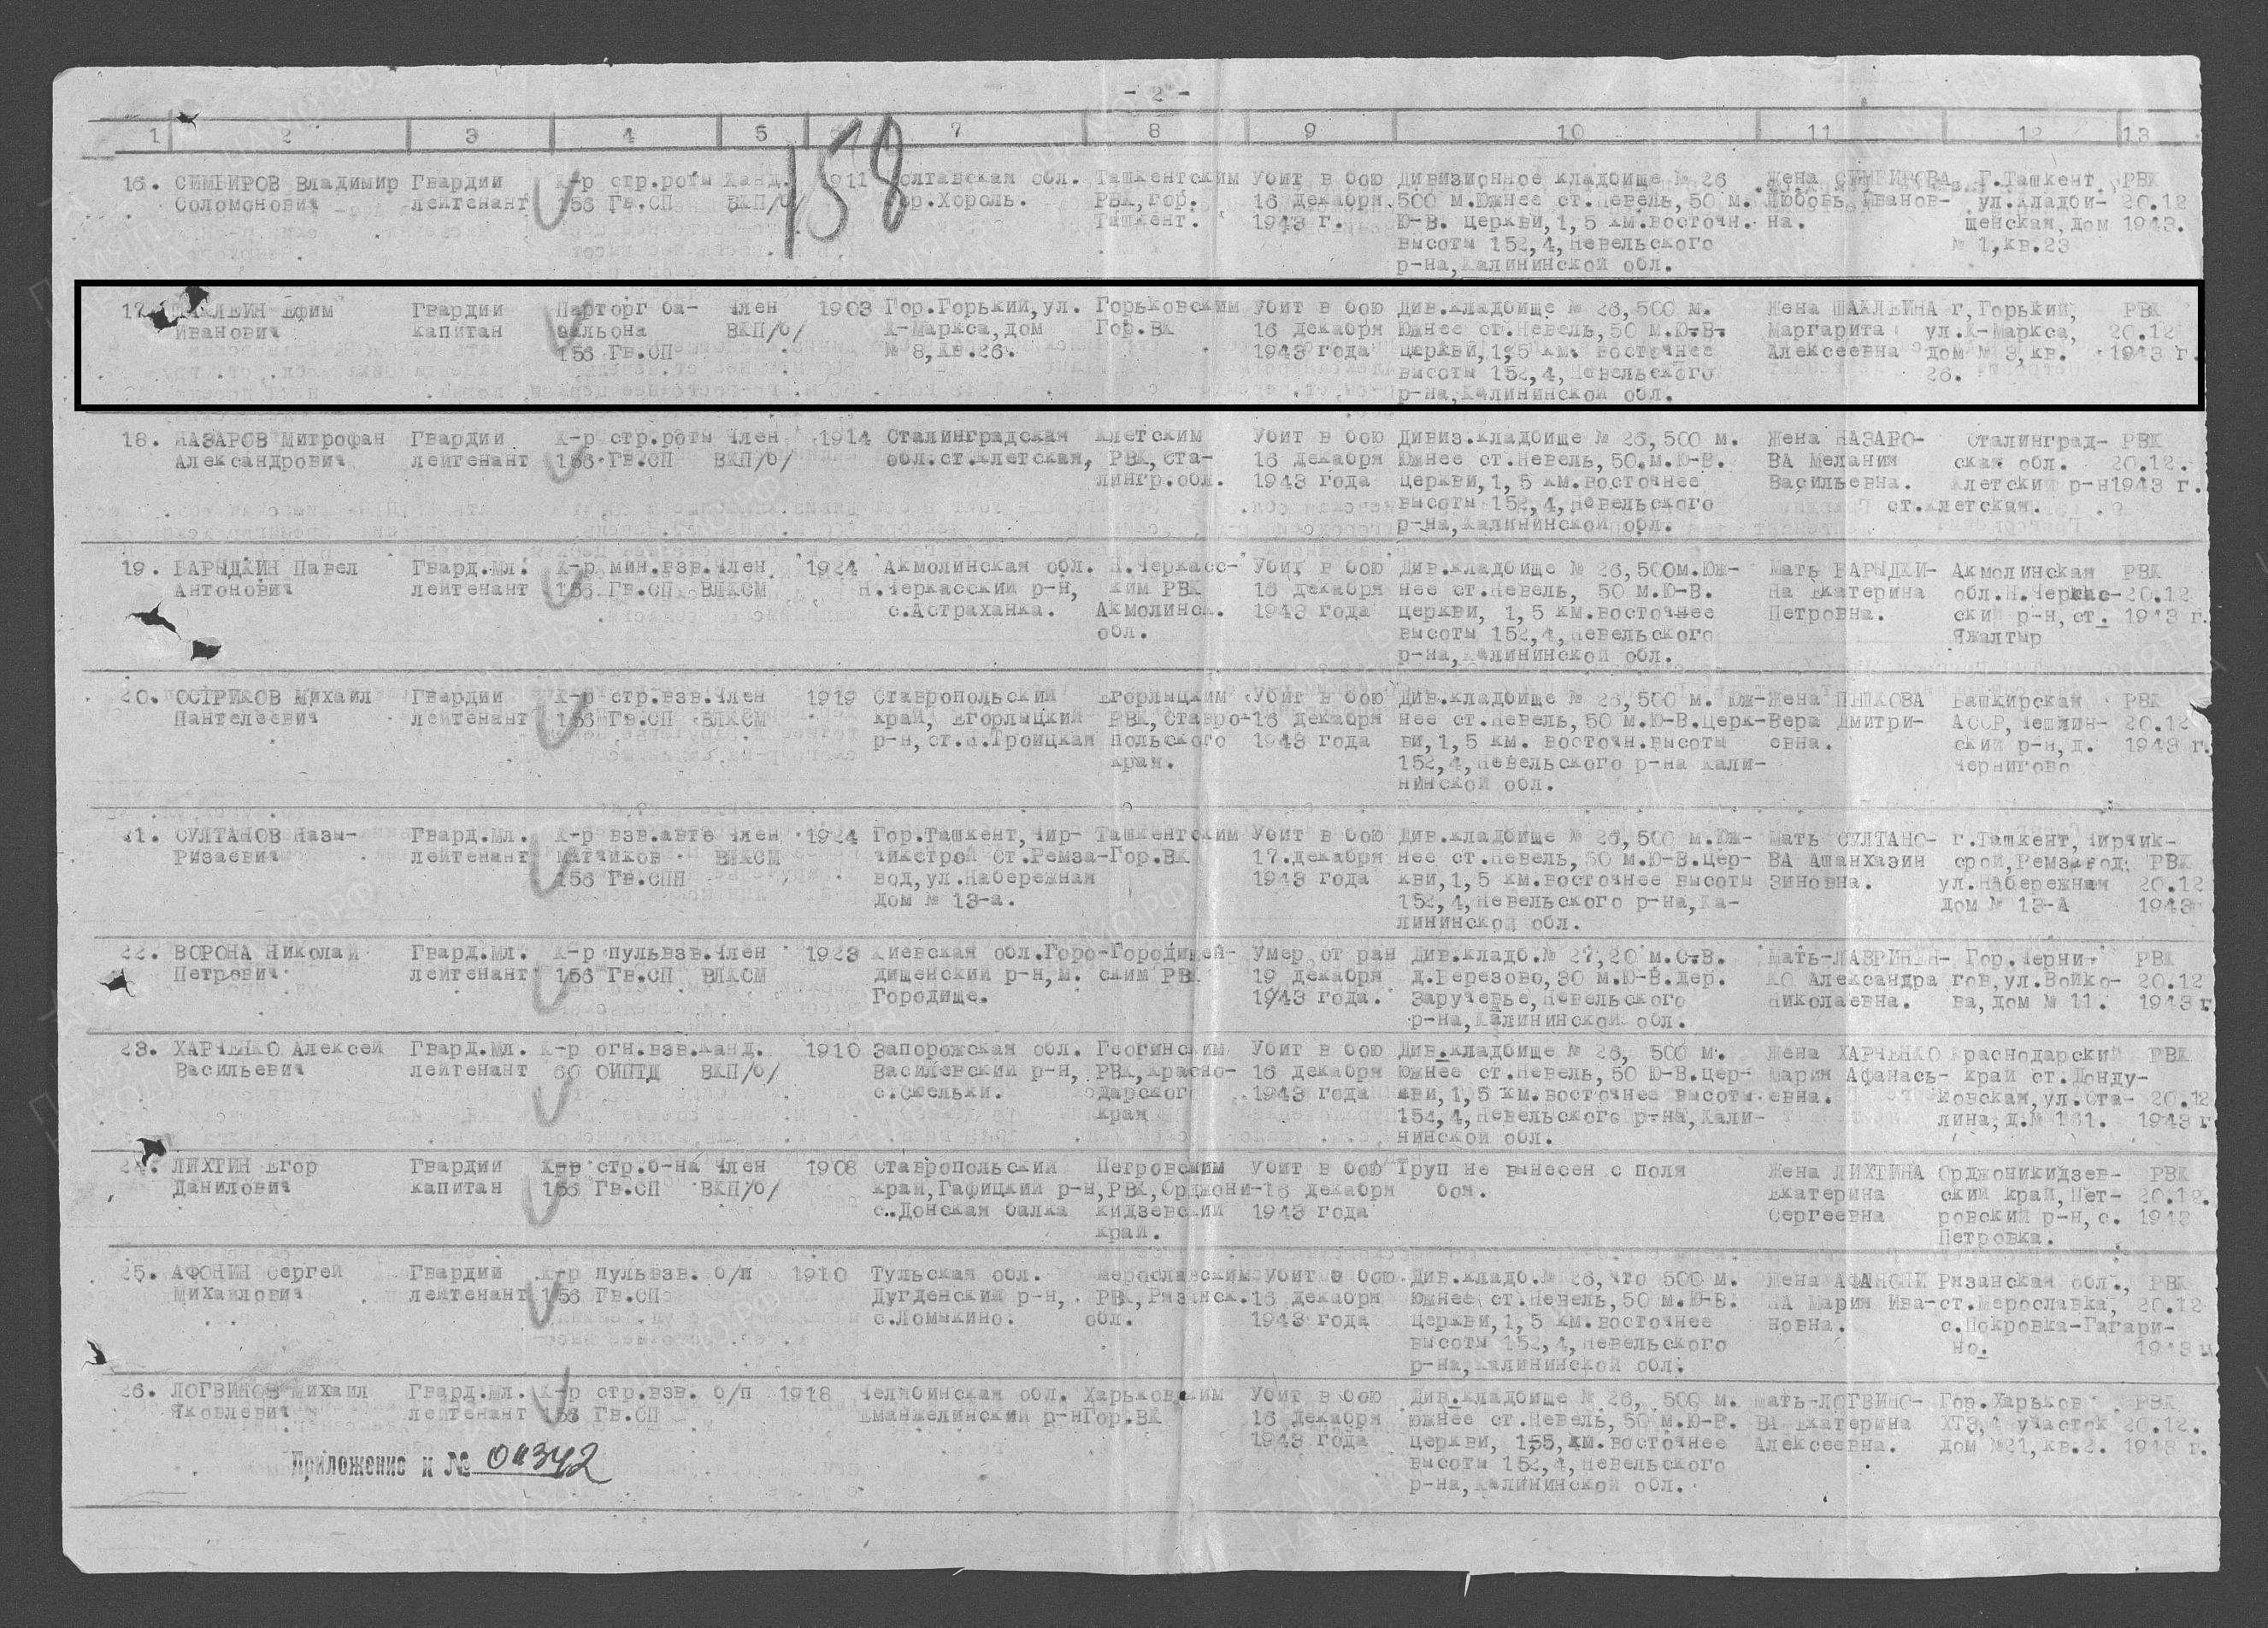 - 2 -
1 2 3 4 5 7 8 9 10 11 12 13
158
16. СИМБИРОВ Владимир Гвардии К-р стр.роты Канд. 1911 Полтавская обл. Ташкентским Убит в бою Дивизионное кладбище № 26 Жена СИМБИРОВА Г.Ташкент, РВК
Соломонович лейтенант 156 Гв.СП ВКП/б/ гор.Хороль. РВК,гор. 16 декабря 500 м.Южнее ст.Невель,50 м. Любовь Иванов- 20.12
Ташкент. 1943 г. Ю-В. церкви,1,5 км.восточн. на. щенская,дом 1943.
высоты 152,4,Невельского № 1,кв.23
р-на,Калининской обл.
17. ШАКЛЕИН Ефим Гвардии Парторг ба- Член 1903 Гор.Горький,ул. Горьковским Убит в бою Див.кладбище № 26,500 м. Жена ШАКЛЕИНА г,Горький, РВК
Иванович капитан тальона ВКП/б/ К-Маркса,дом Гор.ВК 16 декабря Южнее ст.Невель,50 м.Ю-В. Маргарита ул.К-Маркса, 20.12
156 Гв.СП № 8,кв.26. 1943 года церкви,1,5 км. восточнее Алексеевна дом № 8,кв. 1943 г.
высоты 152,4,Невельского 26.
р-на,Калининской обл.
18. НАЗАРОВ Митрофан Гвардии К-р стр.роты Член 1914 Сталинградская Клетским Убит в бою Дивиз.кладбище № 26,500 м. Жена НАЗАРО- Сталинград- РВК
Александрович лейтенант 156 Гв.СП ВКП/б/ обл.ст.Клетская, РВК,Ста- 16 декабря Южнее ст.Невель,50.м.Ю-В. ВА Мелания ская обл. 20.12.
лингр.обл. 1943 года церкви,1,5 км.восточнее Васильевна. Клетский р-н 1943 г.
высоты 152,4,Невельского ст.Клетская.
р-на,Калининской обл.
19. БАРЫДКИН Павел Гвард.Мл. К-р мин.взв. Член 1924 Акмолинская обл. Н.Черкасс- Убит в бою Див.кладбище № 26,500м.Юж- Мать БАРЫДКИ- Акмолинская РВК
Антонович лейтенант 156 Гв.СП ВЛКСМ Н.Черкасский р-н, ким РВК 16 декабря нее ст.Невель, 50 м.Ю-В. НА Екатерина обл.Н.Черкас- 20.12
с.Астраханка. Акмолинск. 1943 года церкви, 1,5 км.восточнее Петровна. ский р-н,ст. 1943 г.
обл. высоты 152,4,Невельского Яжалтыр
р-на,Калининской обл.
20. ОСТРИКОВ Михаил Гвардии К-р стр.взв. Член 1919 Ставропольский Егорлыцким Убит в бою Див.кладбище № 26,500 м. Юж- Жена ПЕШКОВА Башкирская РВК
Пантелеевич лейтенант 156 Гв.СП ВЛКСМ край, Егорлыцкий РВК,Ставро- 16 декабря нее ст.Невель,50 м.Ю-В.Церк- Вера Дмитри- АССР,Чешмин- 20.12
р-н,ст.Н.Троицкая польского 1943 года ви,1,5 км. восточн.высоты евна. ский р-н,д. 1943 г.
края. 152,4,Невельского р-на Кали- Чернигово
нинской обл.
21. СУЛТАНОВ Назы- Гвард.Мл. К-р взв.авто Член 1924 Гор.Ташкент,Чир- Ташкентским Убит в бою Див.кладбище № 26,500 м.Юж- Мать СУЛТАНО- г.Ташкент,Чирчик-
Ризаевич лейтенант матчиков ВЛКСМ чикстрой Ст.Ремза- Гор.ВК 17.декабря нее ст.Невель,50 м.Ю-В.цер- ВА Ашанхазин срой,Ремзавод, РВК
156 Гв.СПП вод,ул.Набережная 1943 года кви,1,5 км.восточнее высоты зиновна. ул.Набережная 20.12
дом № 13-а. 152,4,Невельского р-на,Ка- дом № 13-А 1943г
лининской обл.
22. ВОРОНА Николай Гвард.Мл. К-р пульвзв. Член 1923 Киевская обл.Горо- Городищен- Умер от ран Див.кладб.№ 27,20 м.С-В. Мать-ЛАВРИНЕН- Гор.Черни- РВК
Петрович лейтенант 156 Гв.СП ВЛКСМ дищенский р-н,м. ским РВК 19 декабря д.Березово,30 м.Ю-В.дер. КО Александра гов,ул.Войко- 20.12
Городище. 1943 года. Заручевье,Невельского Николаевна. ва,дом № 11. 1943 г
р-на,Калининской обл.
23. ХАРЧЕНКО Алексей Гвард.Мл. К-р огн.взв. Канд. 1910 Запорожская обл. Геогинским Убит в бою Див.кладбище № 26, 500 м. Жена ХАРЧЕНКО Краснодарский РВК
Васильевич лейтенант 60 ОИПТД ВКП/б/ Василевский р-н, РВК,Красно- 16 декабря Южнее ст.Невель,50 Ю-В.цер- Мария Афанась- край ст.Донду-
с.Скельки. дарского 1943 года кви,1,5 км.восточнее высоты евна. ковская,ул.Ста- 20.12
края 152,4,Невельского р-на,Кали- лина,д.№ 161. 1943 г
нинской обл.
24. ЛИХТИН Егор Гвардии Квв стр.б-на Член 1908 Ставропольский Петровским Убит в бою Труп не вынесен с поля Жена ЛИХТИНА Орджоникидзев- РВК
Данилович капитан 156 Гв.СП ВКП/б/ край,Гафицкий р-н, РВК,Орджони- 16 декабря боя. Екатерина ский край,Пет- 20.12.
с.Донская балка кидзевский 1943 года Сергеевна ровский р-н,с. 1943
край. Петровка.
25. АФОНИН Сергей Гвардии К-р пульвзв. б/п 1910 Тульская обл. Мерославским Убит в бою Див.кладб.№ 26,что 500 м. Жена АФАНОНИ Рязанская обл., РВК
Михайлович лейтенант 156 Гв.СП Дугденский р-н, РВК,Рязанск. 16 декабря Южнее ст.Невель,50 м.Ю-В. НА Мария Ива- ст.Мерославка, 20.12
с.Ломыкино. обл. 1943 года церкви,1,5 км.восточнее новна. с.Покровка-Гагари-
высоты 152,4,Невельского но. 1943
р-на,Калининской обл.
26. ЛОГВИНОВ Михаил Гвард.Мл. К-р стр.взв. б/п 1918 Челябинская обл. Харьковским Убит в бою Див.кладбище № 26, 500 м. Мать-ЛОГВИНО- Гор.Харьков РВК
Яковлевич лейтенант 156 Гв.СП Еманжелинский р-н Гор.ВК 16 декабря южнее ст.Невель,50 м.Ю-В. ВА Екатерина ХТЗ,4 участок 20.12.
1943 года церкви, 1,5, км.восточнее Алексеевна. дом №21,кв.2. 1943 г.
высоты 152,4,Невельского
р-на,Калининской обл.
Приложение к № 04342